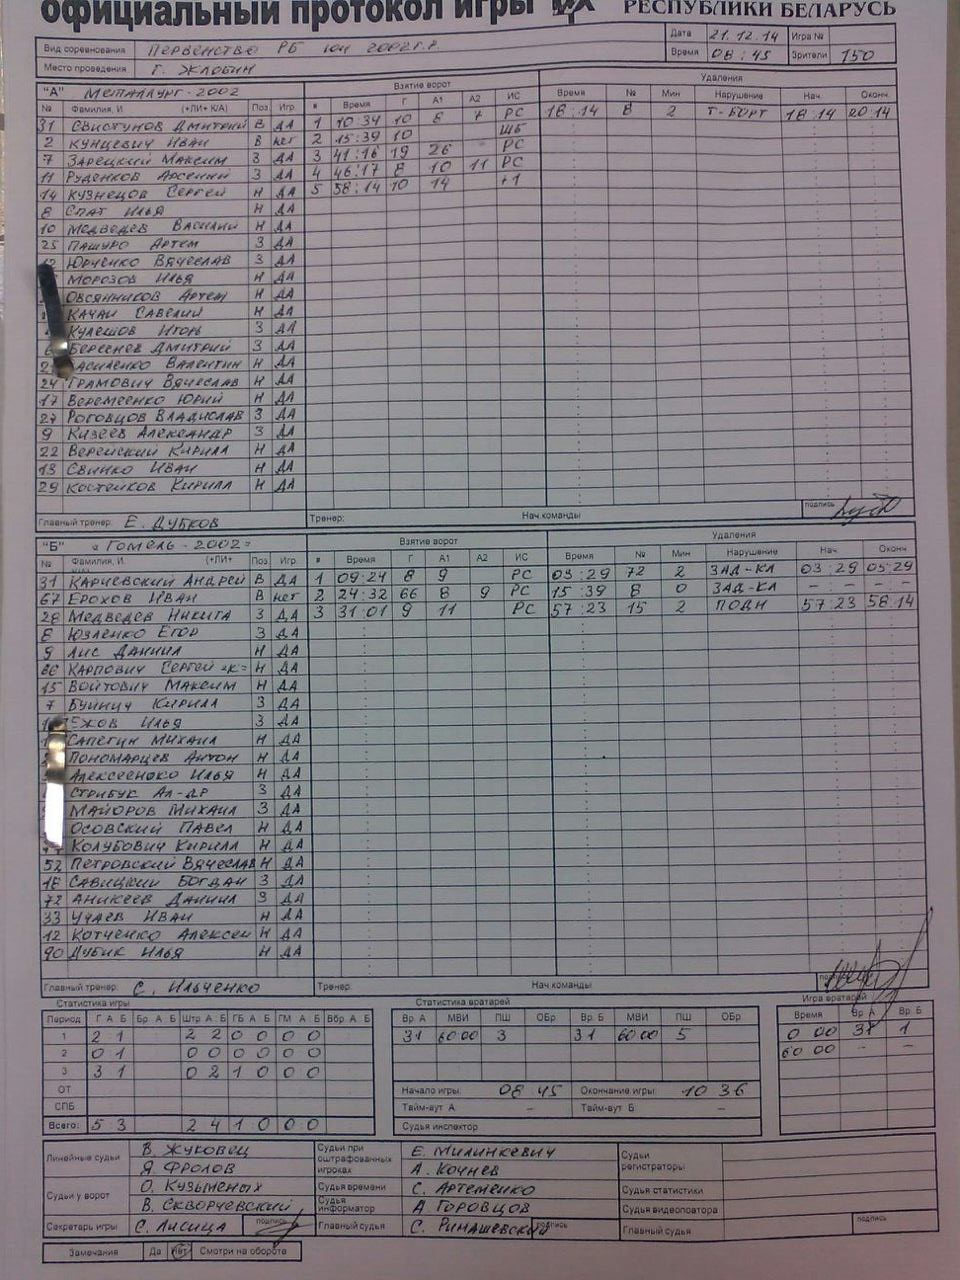 официальный протокол игры РЕСПУБЛИКИ БЕЛАРУСЬ
Вид соревнования Первенство РБ юн 2002 г.р. Дата 21.12.14 Игра №
Место проведения г. Жлобин Время 08:45 Зрители 150
"А" Металлург-2002 Взятие ворот Удаления
№ Фамилия, И (+ЛИ+ К/А) Поз Игр. # Время Г А1 А2 ИС Время № Мин Нарушение Нач. Оконч.
31 Свистунов Дмитрий В ДА 1 10:34 10 8 7 РС 18:14 8 2 Т-БОРТ 18 14 20 14
2 Кунцевич Иван В нет 2 15:39 10 ШБ
7 Зарецкий Максим З ДА 3 41:16 19 26 РС
11 Руденков Арсений З ДА 4 46:17 8 10 11 РС
14 Кузнецов Сергей Н ДА 5 58:14 10 14 +1
8 Спат Илья Н ДА
10 Медведев Василий Н ДА
25 Пашуро Артем З ДА
Юрченко Вячеслав З ДА
Морозов Илья Н ДА
Овсянников Артем Н ДА
Качан Савелий Н ДА
Кулешов Игорь З ДА
6 Береснев Дмитрий З ДА
Василенко Валентин Н ДА
24 Грамович Вячеслав Н ДА
17 Веремеенко Юрий Н ДА
27 Роговцов Владислав З ДА
9 Кизеев Александр З ДА
22 Верейский Кирилл Н ДА
13 Свинко Иван Н ДА
29 Костейков Кирилл Н ДА
Главный тренер: Е. Дубков Тренер: Нач.команды подпись
"Б" «Гомель-2002» Взятие ворот Удаления
№ Фамилия, И (+ЛИ+ К/А) Поз Игр. # Время Г А1 А2 ИС Время № Мин Нарушение Нач. Оконч
31 Карчевский Андрей В ДА 1 09:24 8 9 РС 03:29 72 2 ЗАД-КЛ 03 29 05 29
67 Ерохов Иван В нет 2 24:32 66 8 9 РС 15:39 8 0 ЗАД-КЛ - - - -
28 Медведев Никита З ДА 3 31:01 9 11 РС 57:23 15 2 ПОДН 57 23 58 14
8 Юзленко Егор З ДА
9 Лис Даниил Н ДА
66 Карпович Сергей «К» Н ДА
15 Войтович Максим Н ДА
7 Буйнич Кирилл З ДА
Ежов Илья З ДА
Сапегин Михаил Н ДА
Пономарцев Антон Н ДА
Алексеенко Илья Н ДА
Стрибук Ал-др З ДА
Майоров Михаил З ДА
Осовский Павел Н ДА
Колубович Кирилл Н ДА
52 Петровский Вячеслав Н ДА
18 Савицкий Богдан З ДА
72 Аникеев Даниил З ДА
33 Учаев Иван Н ДА
12 Котченко Алексей Н ДА
90 Дубик Илья Н ДА
Главный тренер: С. Ильченко Тренер: Нач.команды
Статистика игры Статистика вратарей Игра вратарей
Период Г А Б Бр А Б Штр А Б ГБ А Б ГМ А Б Вбр А Б Вр А МВИ ПШ ОБр Вр Б МВИ ПШ ОБр Время Вр А Вр Б
1 2 1 2 2 0 0 0 0 31 60 00 3 31 60 00 5 0 00 31 1
2 0 1 0 0 0 0 0 0 60 00 - -
3 3 1 0 2 1 0 0 0
ОТ Начало игры: 08 45 Окончание игры: 10 36
СПБ Тайм-аут А - Тайм-аут Б -
Всего: 5 3 2 4 1 0 0 0 Судья инспектор
Линейные судьи В. Жуковец Судьи при оштрафованных игроках Е. Милинкевич Судьи регистраторы
Я. Фролов А. Кочнев
Судьи у ворот О. Кузьменых Судья времени С. Артеменко Судьи статистики
В. Скворчевский Судья информатор А Горовцов Судьи видеоповтора
Секретарь игры С. Лисица подпись Главный судья С. Римашевский подпись Главный судья подпись
Замечания Да Нет Смотри на обороте